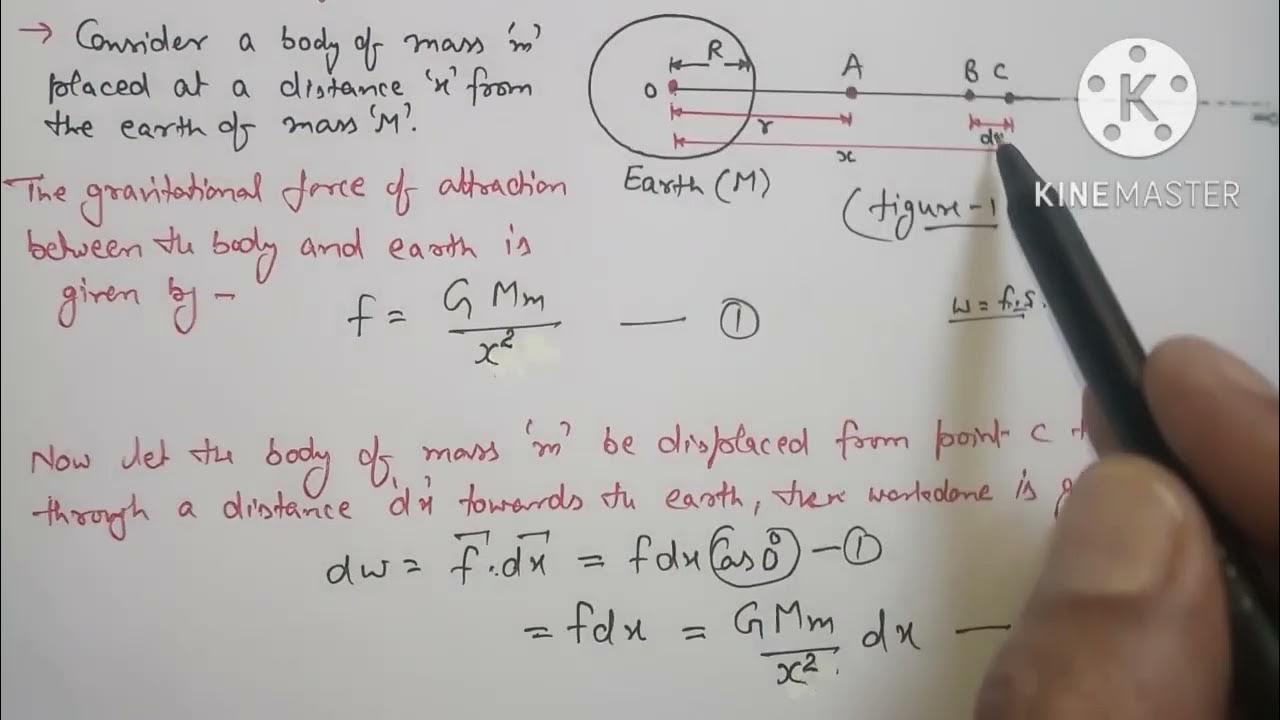 → Consider a body of mass 'm'
placed at a distance 'x' from
the earth of mass 'M'.
R
O
A
B C
r
x
Earth (M)
(figure-1
K
KINEMASTER
The gravitational force of attraction
between the body and earth is
given by -
f = G Mm / x² — ①
w = f.s.
Now let the body of mass 'm' be displaced from point C
through a distance 'dx' towards the earth, then workdone is
dw = f⃗.dx⃗ = fdx Cos 0° — ①
= fdx = G Mm / x² dx —